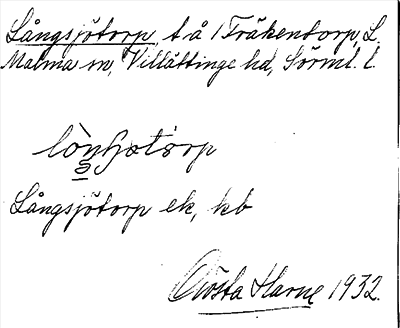 Långsjötorp, t å 1 Träkentorp, L.
Malma sn, Villåttinge hd, Sörml. l.
Långsjötorp ek, kb
Gösta Harne 1932.